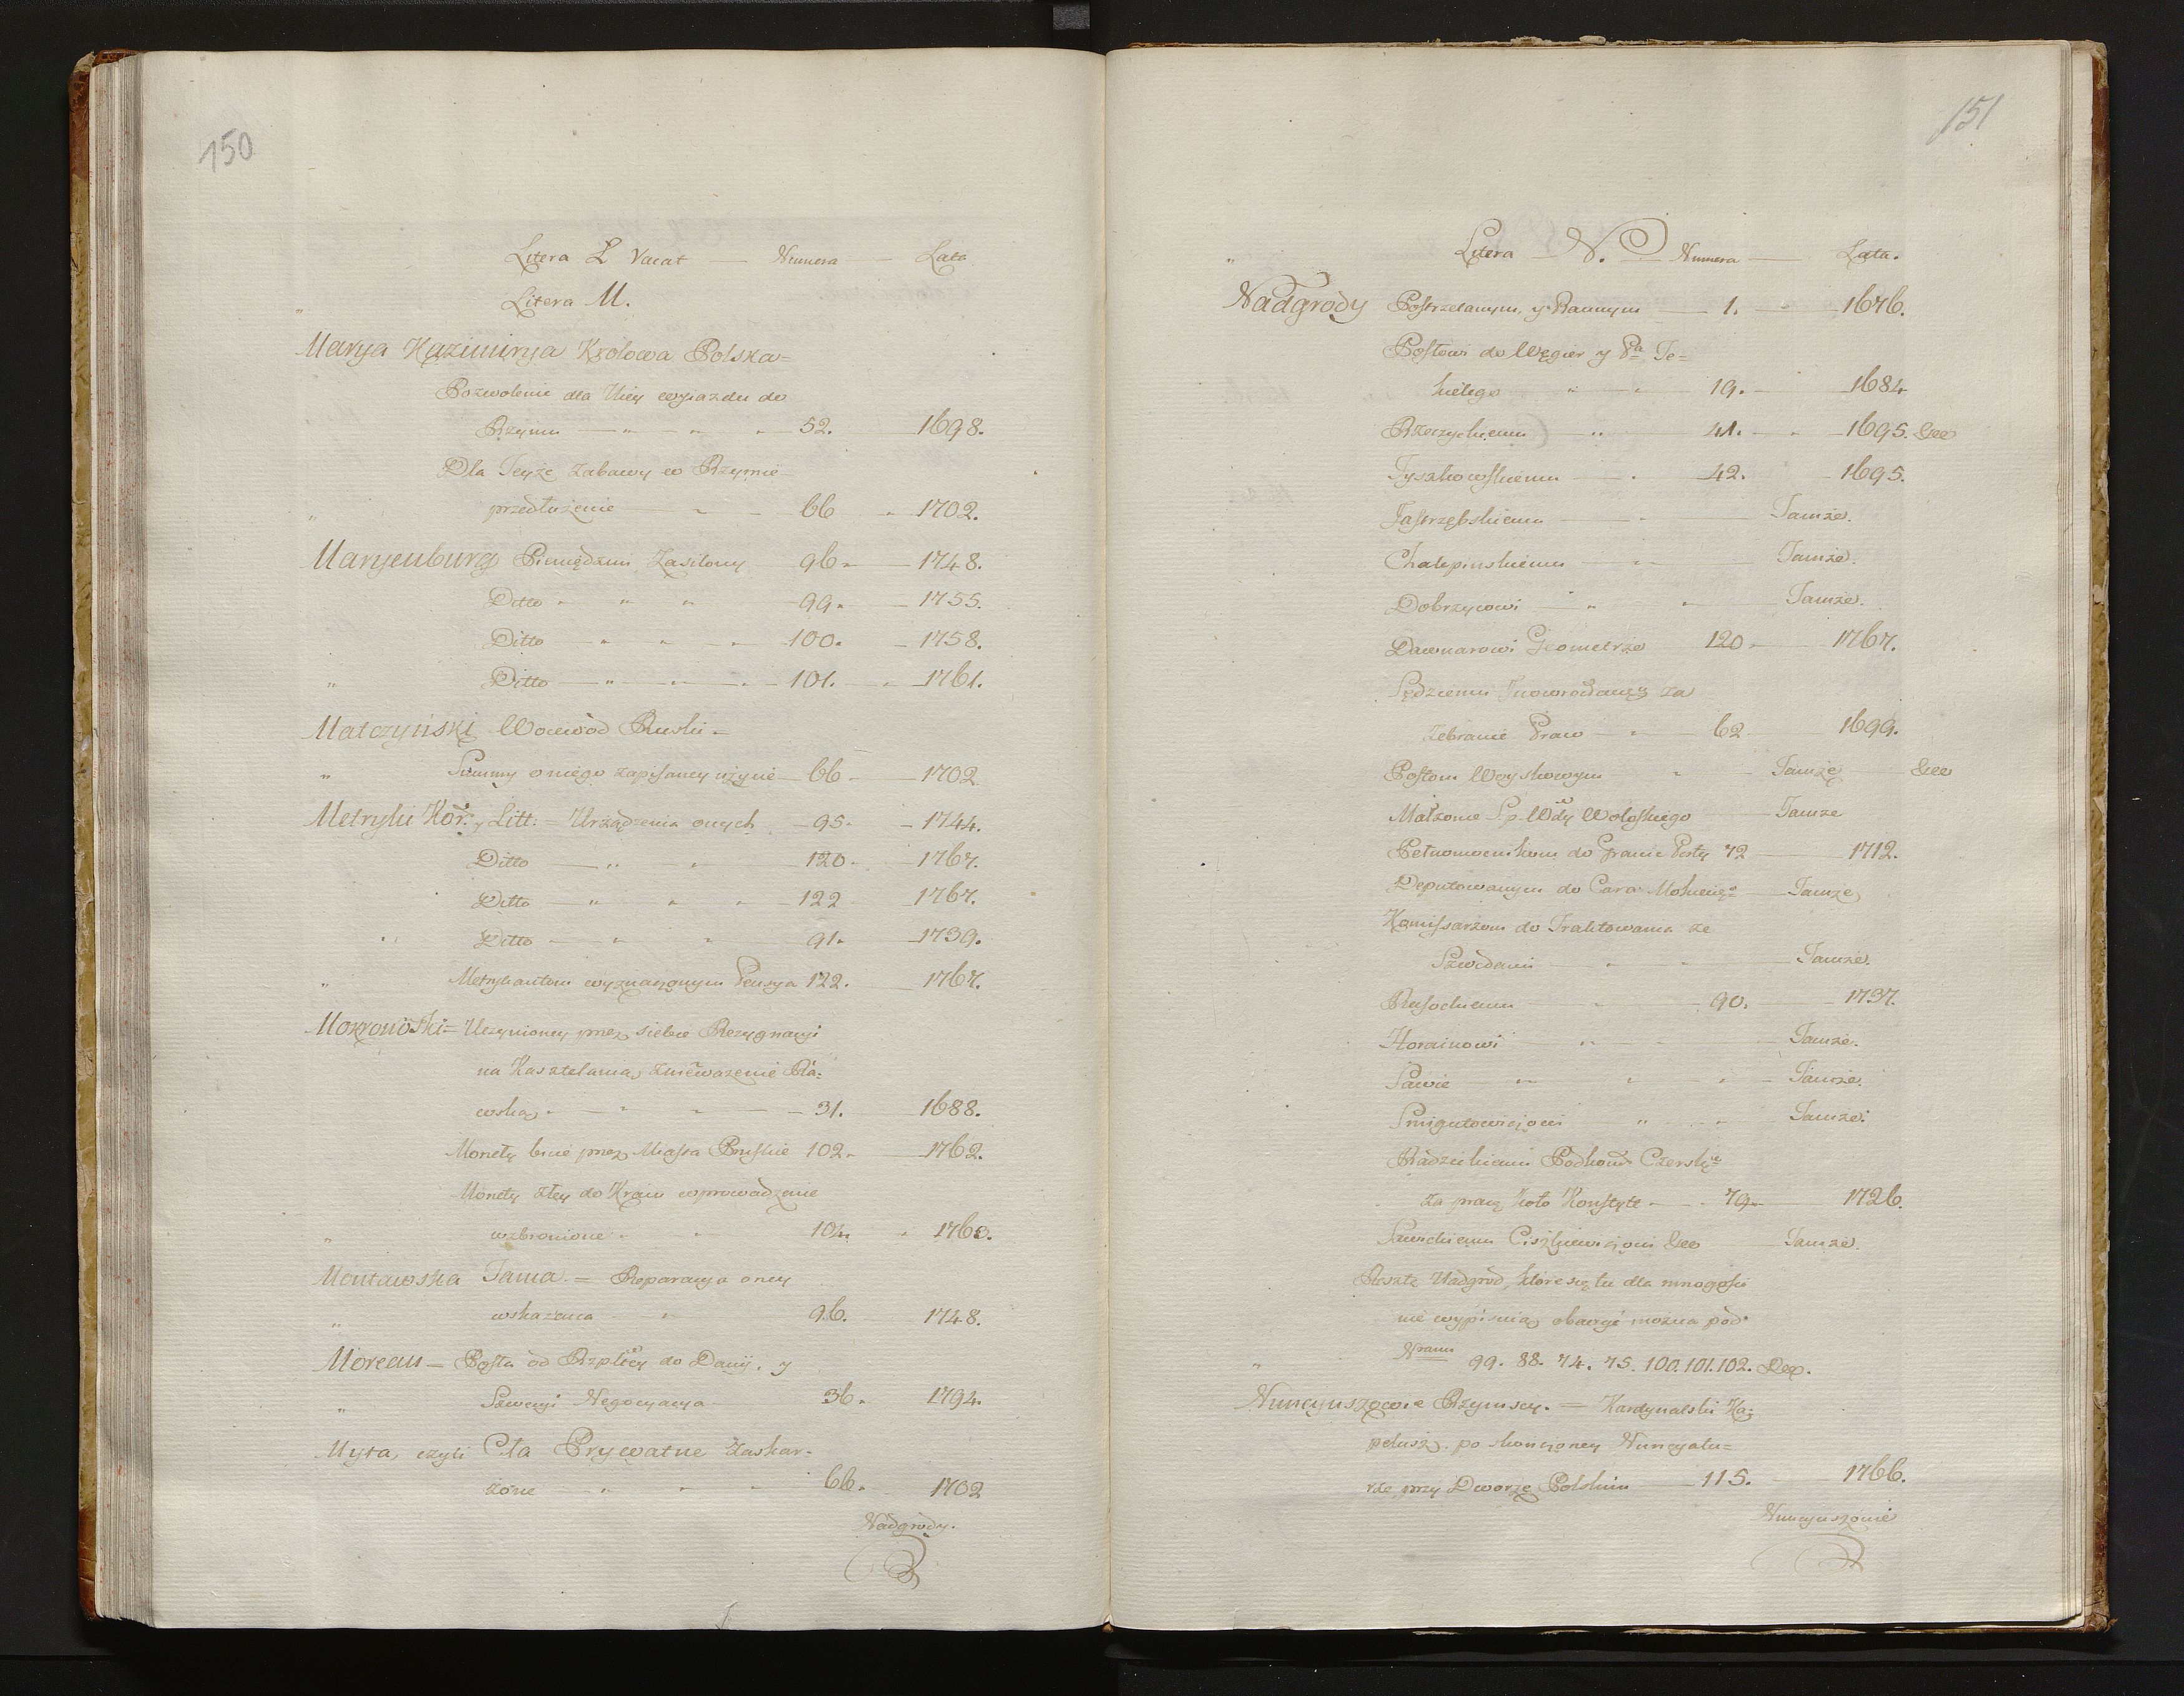 150
Litera L Vacat — Numera — Lata
Litera M.
Marya Kazimirya Krolowa Polska =
Pozwolenie dla Niey wyiazdu do
Rzymu — 52. 1698.
Dla Teyże zabawy w Rzymie
przedłużenie — 66 1702.
Maryenburg Pieniędzmi Zasilony 96 — 1748.
Ditto 99 — 1755.
Ditto — 100. — 1758.
Ditto — 101. — 1761.
Matczyński Woiewod Ruski —
Summy o niego zapisaney użycie — 66 — 1702
Metryki Kor: y Litt: = Urządzenia onych — 95. — 1744.
Ditto — 120. — 1767.
Ditto — 122 — 1767.
Ditto — 91. — 1739.
Metrykantom wyznaczonym Pensya 122. — 1767.
Mokronoski = Uczynioney przez siebie Rezygnacyi
na Kasztelanią znieważenie Ra:
wską — 31. 1688.
Monety bicie przez Miasta Pruskie 102. — 1762.
Monety złey do Kraiu wprowadzenie
wzbronione 104. 1760.
Montawska Tama = Reparacya oney
wskazana 96. 1748.
Moreau — Posła od Rzpltey do Danij, y
Szwecyi Negocyacya 36. 1794.
Myta, czyli Cła Prywatne Zaskar-
żone — 66. 1702
Nadgrody.
151
Litera N. Numera — Lata.
Nadgrody Postrzelanym, y Rannym — 1. — 1676.
Posłowi do Węgier y Pa Te=
kielego 19. — 1684
Rzeczyckiemu 41. — 1695. &cc
Tyszkowskiemu — 42. — 1695.
Jastrzębskiemu — Tamże.
Chalepinskiemu — Tamże.
Dobrzycowi — Tamże.
Dawnarowi Geometrze 120 — 1767.
Sędziemu Inowrocławs: za
zebranie Praw — 62 1699.
Posłom Woyskowym — Tamże &cc
Małżonce Sp. Wdy Wołoskiego — Tamże
Pełnomocnikom do Granic Porty 72 — 1712.
Deputowanym do Cara Moskiewsgo — Tamże
Komissarzom do Traktowania ze
Szwedami — Tamże.
Rasockiemu — 90. — 1737.
Horainowi — Tamże.
Sawie — Tamże.
Smigutowiczowi — Tamże.
Radzickiemu Podkom: Czerskmu
za pracę koło Konstyt — 79. — 1726.
Sawickiemu Ciszkiewiczowi &cc — Tamże.
Resztę Nadgród, które się tu dla mnogości
nie wypisuią obaczyć można pod
Nrami 99. 88. 74. 75. 100. 101. 102. &cc.
Nuncyuszowie Rzymscy. = Kardynalski Ka:
pelusz, po skończoney Nuncyatu=
rze przy Dworze Polskim — 115. — 1766.
Nuncyuszowie